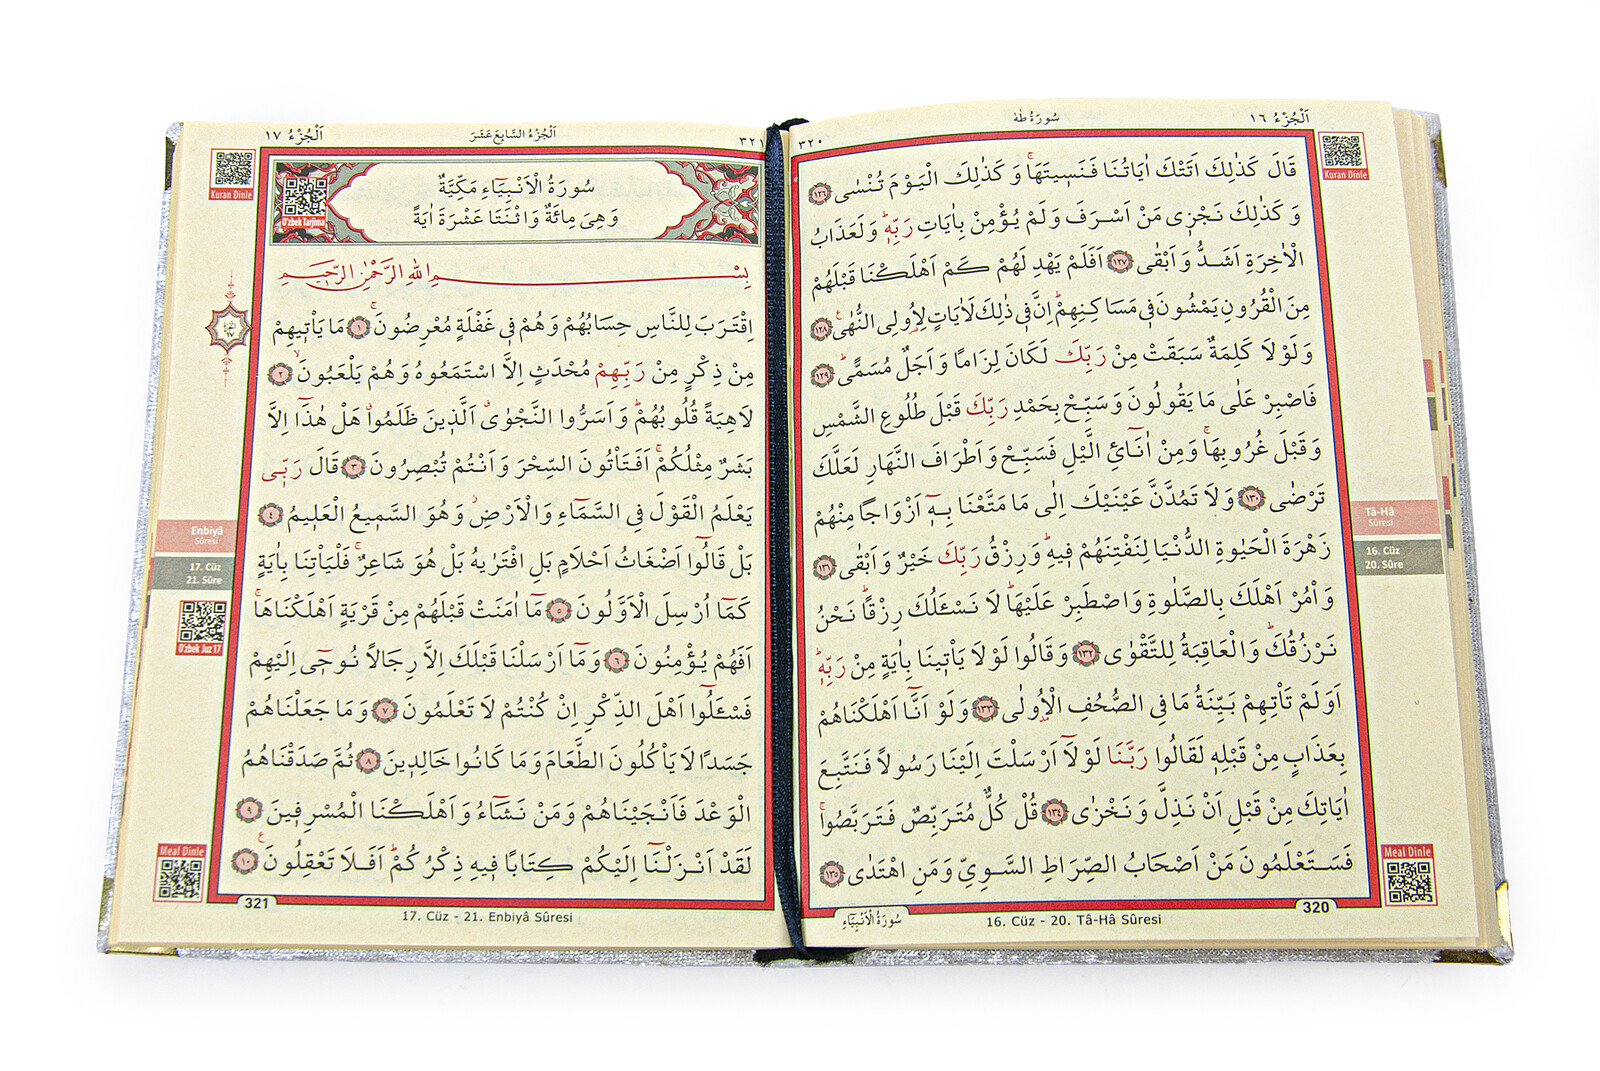 اَلْجُزْءُ ١٦
سُورَةُ طٰهٰ
٣٢٠
Kuran Dinle
قَالَ كَذٰلِكَ اَتَتْكَ اٰيَاتُنَا فَنَس۪يتَهَاۚ وَكَذٰلِكَ الْيَوْمَ تُنْسٰى ١٢٦
وَكَذٰلِكَ نَجْز۪ي مَنْ اَسْرَفَ وَلَمْ يُؤْمِنْ بِاٰيَاتِ رَبِّه۪ۜ وَلَعَذَابُ
الْاٰخِرَةِ اَشَدُّ وَاَبْقٰى ١٢٧ اَفَلَمْ يَهْدِ لَهُمْ كَمْ اَهْلَكْنَا قَبْلَهُمْ
مِنَ الْقُرُونِ يَمْشُونَ ف۪ي مَسَاكِنِهِمْۜ اِنَّ ف۪ي ذٰلِكَ لَاٰيَاتٍ لِاُو۬لِي النُّهٰى۟ ١٢٨
وَلَوْلَا كَلِمَةٌ سَبَقَتْ مِنْ رَبِّكَ لَكَانَ لِزَامًا وَاَجَلٌ مُسَمًّىۜ ١٢٩
فَاصْبِرْ عَلٰى مَا يَقُولُونَ وَسَبِّحْ بِحَمْدِ رَبِّكَ قَبْلَ طُلُوعِ الشَّمْسِ
وَقَبْلَ غُرُوبِهَاۚ وَمِنْ اٰنَٓائِ الَّيْلِ فَسَبِّحْ وَاَطْرَافَ النَّهَارِ لَعَلَّكَ
تَرْضٰى ١٣٠ وَلَا تَمُدَّنَّ عَيْنَيْكَ اِلٰى مَا مَتَّعْنَا بِه۪ٓ اَزْوَاجًا مِنْهُمْ
زَهْرَةَ الْحَيٰوةِ الدُّنْيَا لِنَفْتِنَهُمْ ف۪يهِۜ وَرِزْقُ رَبِّكَ خَيْرٌ وَاَبْقٰى ١٣١
وَأْمُرْ اَهْلَكَ بِالصَّلٰوةِ وَاصْطَبِرْ عَلَيْهَاۜ لَا نَسْـَٔلُكَ رِزْقًاۜ نَحْنُ
نَرْزُقُكَۜ وَالْعَاقِبَةُ لِلتَّقْوٰى ١٣٢ وَقَالُوا لَوْلَا يَأْت۪ينَا بِاٰيَةٍ مِنْ رَبِّه۪ۜ
اَوَلَمْ تَأْتِهِمْ بَيِّنَةُ مَا فِي الصُّحُفِ الْاُو۫لٰى ١٣٣ وَلَوْ اَنَّٓا اَهْلَكْنَاهُمْ
بِعَذَابٍ مِنْ قَبْلِه۪ لَقَالُوا رَبَّنَا لَوْلَٓا اَرْسَلْتَ اِلَيْنَا رَسُولًا فَنَتَّبِعَ
اٰيَاتِكَ مِنْ قَبْلِ اَنْ نَذِلَّ وَنَخْزٰى ١٣٤ قُلْ كُلٌّ مُتَرَبِّصٌ فَتَرَبَّصُواۚ
فَسَتَعْلَمُونَ مَنْ اَصْحَابُ الصِّرَاطِ السَّوِيِّ وَمَنِ اهْتَدٰى ١٣٥
Tâ-Hâ
Sûresi
16. Cüz
20. Sûre
Meal Dinle
320
16. Cüz - 20. Tâ-Hâ Sûresi
سُورَةُ الْاَنْبِيَٓاءِ
٣٢١
اَلْجُزْءُ السَّابِعَ عَشَرَ
اَلْجُزْءُ ١٧
Kuran Dinle
O'zbek Tarjima
سُورَةُ الْاَنْبِيَٓاءِ مَكِّيَّةٌ
وَهِيَ مِائَةٌ وَاثْنَتَا عَشْرَةَ اٰيَةً
بِسْمِ اللّٰهِ الرَّحْمٰنِ الرَّح۪يمِ
اِقْتَرَبَ لِلنَّاسِ حِسَابُهُمْ وَهُمْ ف۪ي غَفْلَةٍ مُعْرِضُونَۚ ١ مَا يَأْت۪يهِمْ
مِنْ ذِكْرٍ مِنْ رَبِّهِمْ مُحْدَثٍ اِلَّا اسْتَمَعُوهُ وَهُمْ يَلْعَبُونَۙ ٢
لَاهِيَةً قُلُوبُهُمْۜ وَاَسَرُّوا النَّجْوٰىۗ اَلَّذ۪ينَ ظَلَمُواۗ هَلْ هٰذَٓا اِلَّا
بَشَرٌ مِثْلُكُمْۚ اَفَتَأْتُونَ السِّحْرَ وَاَنْتُمْ تُبْصِرُونَ ٣ قَالَ رَبّ۪ي
يَعْلَمُ الْقَوْلَ فِي السَّمَٓاءِ وَالْاَرْضِۘ وَهُوَ السَّم۪يعُ الْعَل۪يمُ ٤
بَلْ قَالُٓوا اَضْغَاثُ اَحْلَامٍ بَلِ افْتَرٰيهُ بَلْ هُوَ شَاعِرٌۚ فَلْيَأْتِنَا بِاٰيَةٍ
كَمَٓا اُرْسِلَ الْاَوَّلُونَ ٥ مَٓا اٰمَنَتْ قَبْلَهُمْ مِنْ قَرْيَةٍ اَهْلَكْنَاهَاۚ
اَفَهُمْ يُؤْمِنُونَ ٦ وَمَٓا اَرْسَلْنَا قَبْلَكَ اِلَّا رِجَالًا نُوح۪ٓي اِلَيْهِمْ
فَسْـَٔلُٓوا اَهْلَ الذِّكْرِ اِنْ كُنْتُمْ لَا تَعْلَمُونَ ٧ وَمَا جَعَلْنَاهُمْ
جَسَدًا لَا يَأْكُلُونَ الطَّعَامَ وَمَا كَانُوا خَالِد۪ينَ ٨ ثُمَّ صَدَقْنَاهُمُ
الْوَعْدَ فَاَنْجَيْنَاهُمْ وَمَنْ نَشَٓاءُ وَاَهْلَكْنَا الْمُسْرِف۪ينَ ٩
لَقَدْ اَنْزَلْنَٓا اِلَيْكُمْ كِتَابًا ف۪يهِ ذِكْرُكُمْۜ اَفَلَا تَعْقِلُونَ۟ ١٠
Enbiyâ
Sûresi
17. Cüz
21. Sûre
O'zbek Juz 17
Meal Dinle
321
17. Cüz - 21. Enbiyâ Sûresi